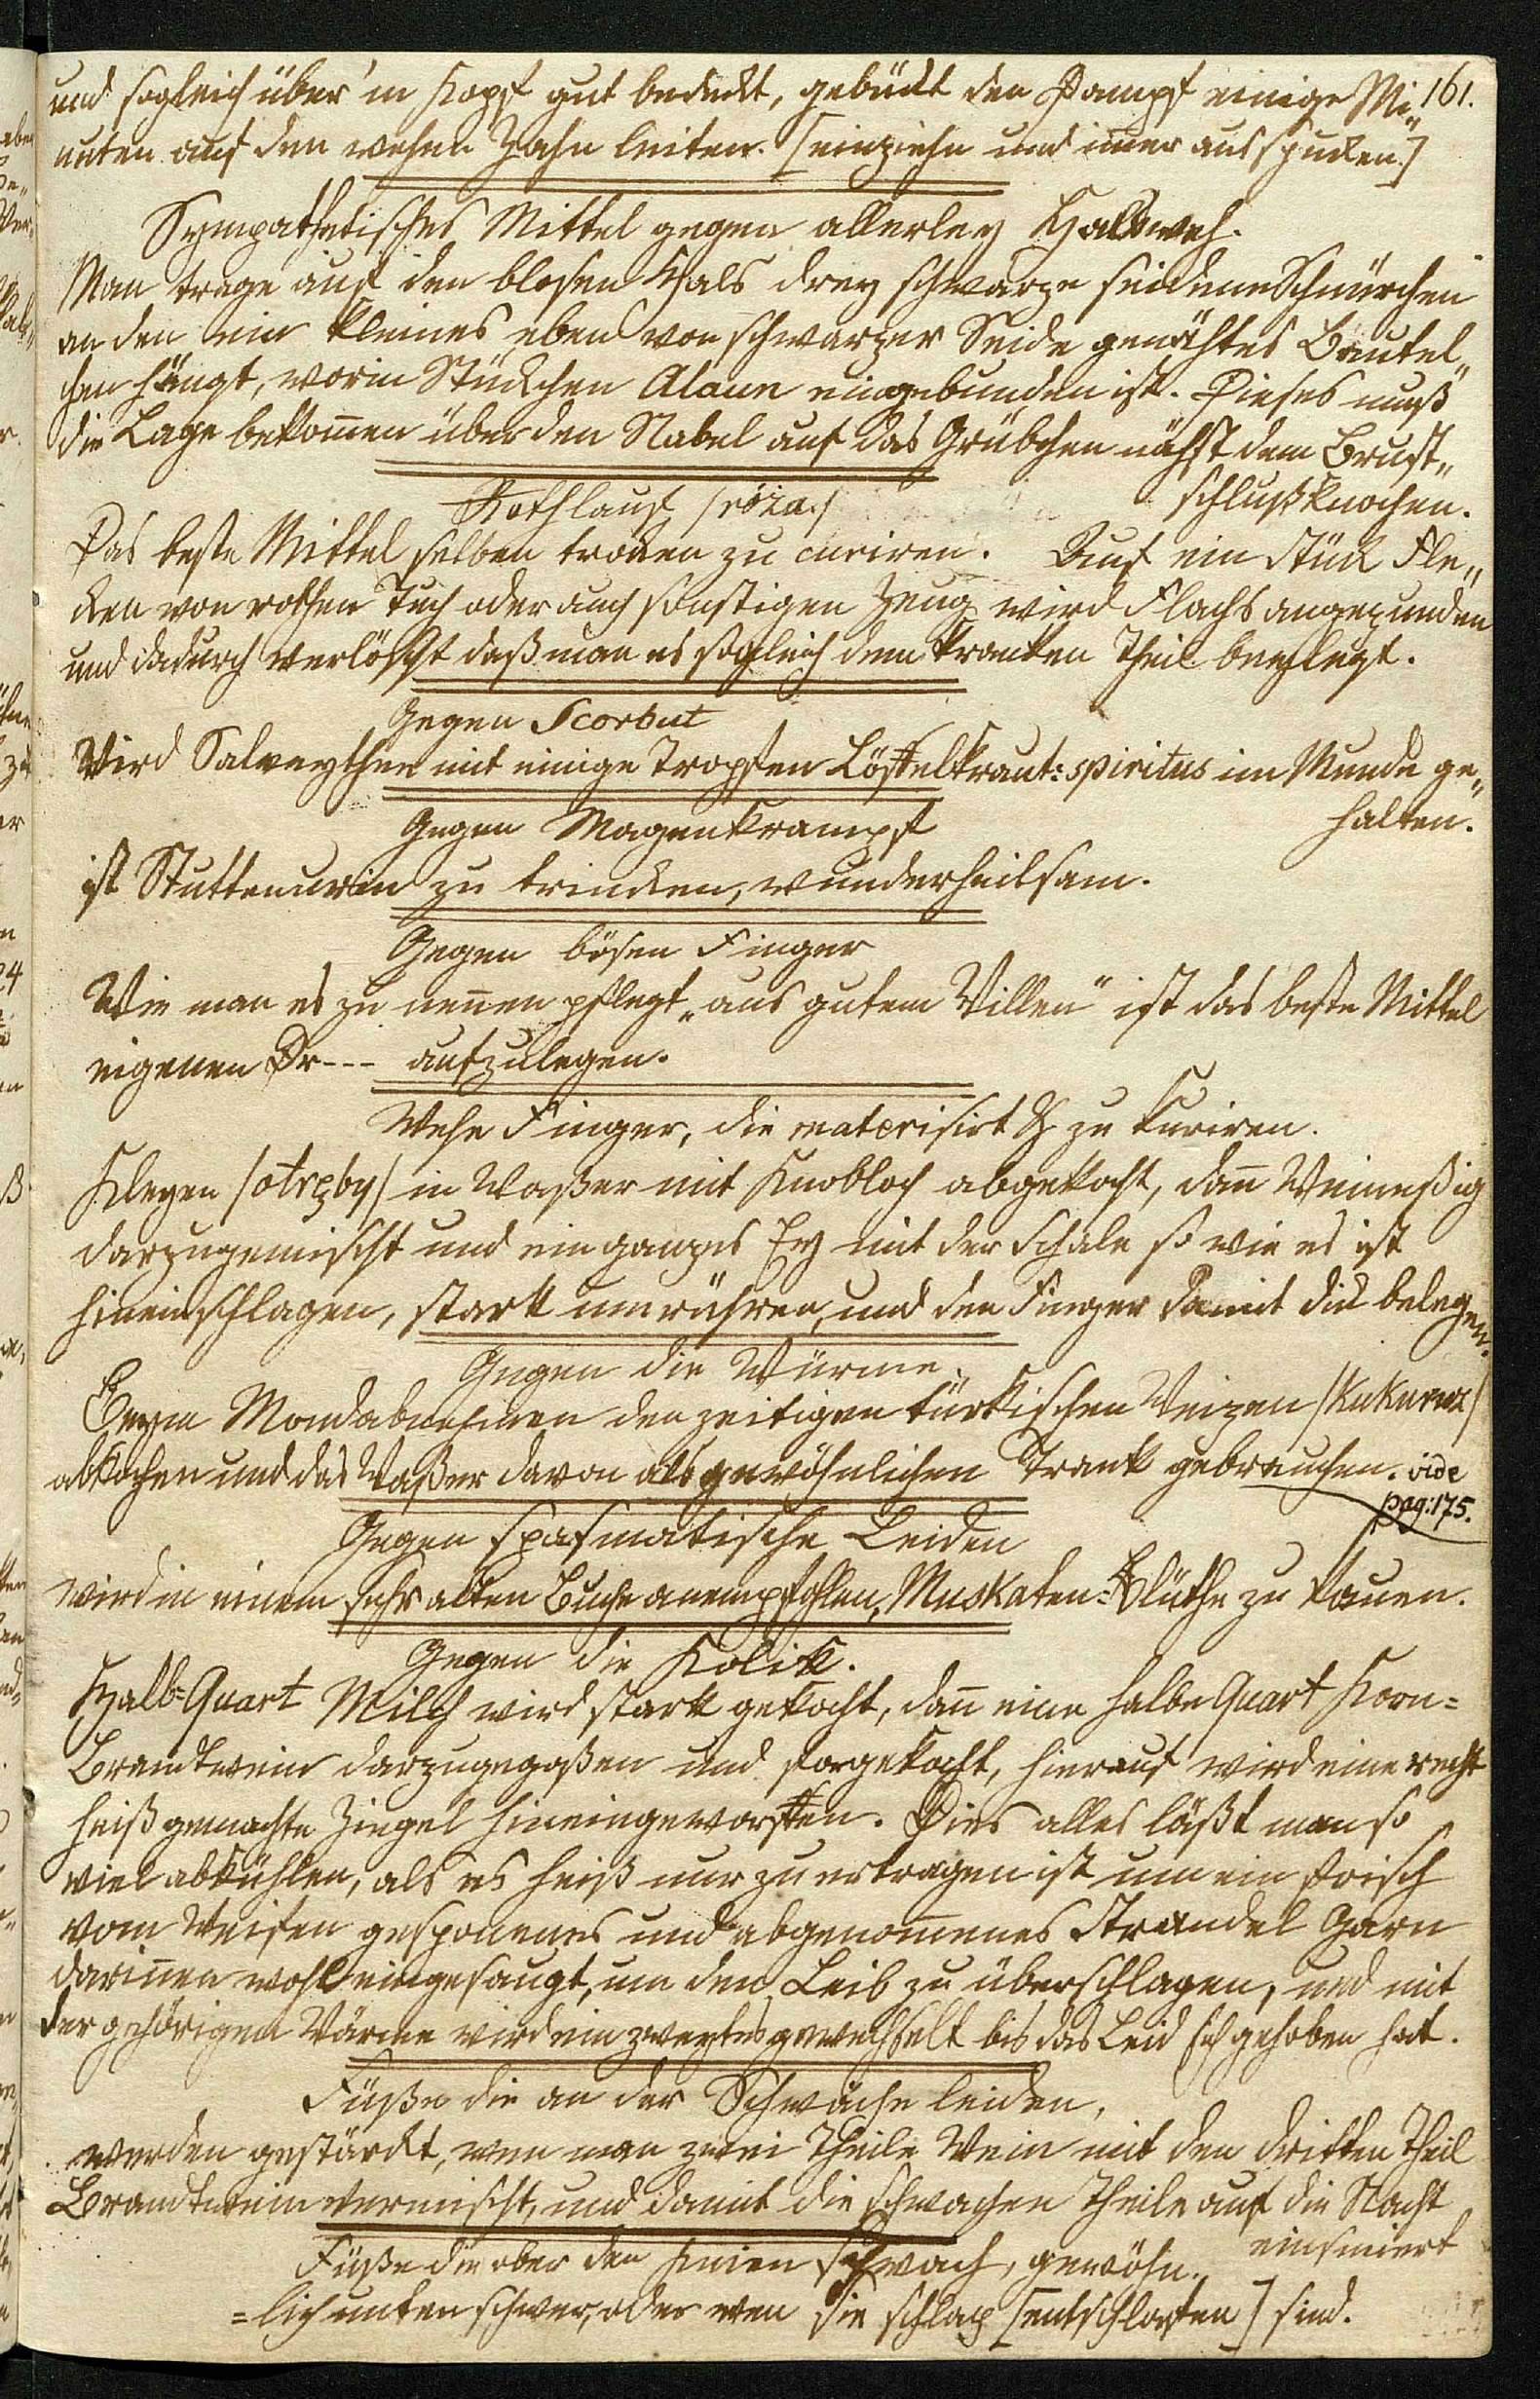 161.
und sogleich über'n Kopf gut bedeckt, gebückt den Dampf einige Mi„
nuten auf den wehen Zahn leiten. [einziehn und im̄er ausspucken.]
Sympathetisches Mittel gegen allerley Halsweh.
Man trage auf den blosen Hals drey schwarze seidene Schnürchen
an den ein kleines eben von schwarzer Seide genähtes Beutel„
chen hängt, worin Stückchen Alaun eingebunden ist. Dieses muß
die Lage bekom̄en über den Nabel auf das Grübchen nächst dem Brust„
schlußknochen.
Rothlauf /róża./
Das beste Mittel selben trocken zu curiren. Auf ein Stück Fle„
cken von rothen Tuch oder auch sonstigen Zeug wird Flachs angezunden
und dadurch verlöscht daß man es sogleich dem kranken Theil beylegt.
Gegen Scorbut
Wird Salveythee mit einige Tropfen Löffelkraut: spiritus im Munde ge„
halten.
Gegen Magenkrampf
ist Stuttenurin zu trincken, wunderheilsam.
Gegen bösen Finger
Wie man es zu nen̄en pflegt „aus gutem Willen" ist das beste Mittel
eigenen Dr--- aufzulegen.
Wehe Finger, die materisirt zu kuriren.
Kleyen /otręby/ in Waßer mit Knobloch abgekocht, dan̄ Weineßig
darzugemischt und ein ganzes Ey mit der Schale so wie es ist
hineinschlagen, stark umrühren, und den Finger damit dick belegen.
Gegen die Würme.
Beym Mondabnehmen den zeitigen türkischen Weizen /Kukuruz/
abkochen und das Waßer davon als gewöhnlichen Trank gebrauchen. vide
pag: 175.
Gegen spasmatische Leiden
wird in einem sehr alten Buche anempfohlen, Muskaten-Blüthe zu kauen.
Gegen die Kolik.
Halb-Quart Milch wird stark gekocht, dan̄ eine halbe Quart Korn=
Brandtwein darzugegoßen und fortgekocht, hierauf wird eine recht
heiß gemachte Ziegel hineingeworffen. Dies alles läßt man so
viel abkühlen, als es heiß nur zu ertragen ist um ein frisch
vom Weifen gesponenes und abgenom̄enes Strandel Garn
darin̄en wohl eingesaugt, um den Leib zu überschlagen, und mit
der gehörigen Wärme wird ein zweytes gewechselt bis das Leid sich gehoben hat.
Füße die an der Schwäche leiden,
werden gestärckt, wen man zwei Theile Wein mit den dritten Theil
Brandtwein vermischt, und damit die schwachen Theile auf die Nacht
einsmiert
Füße die ober den Knien schwach, gewöhn„
=lich unten schwer, oder wen sie schlap [entschlafen] sind.